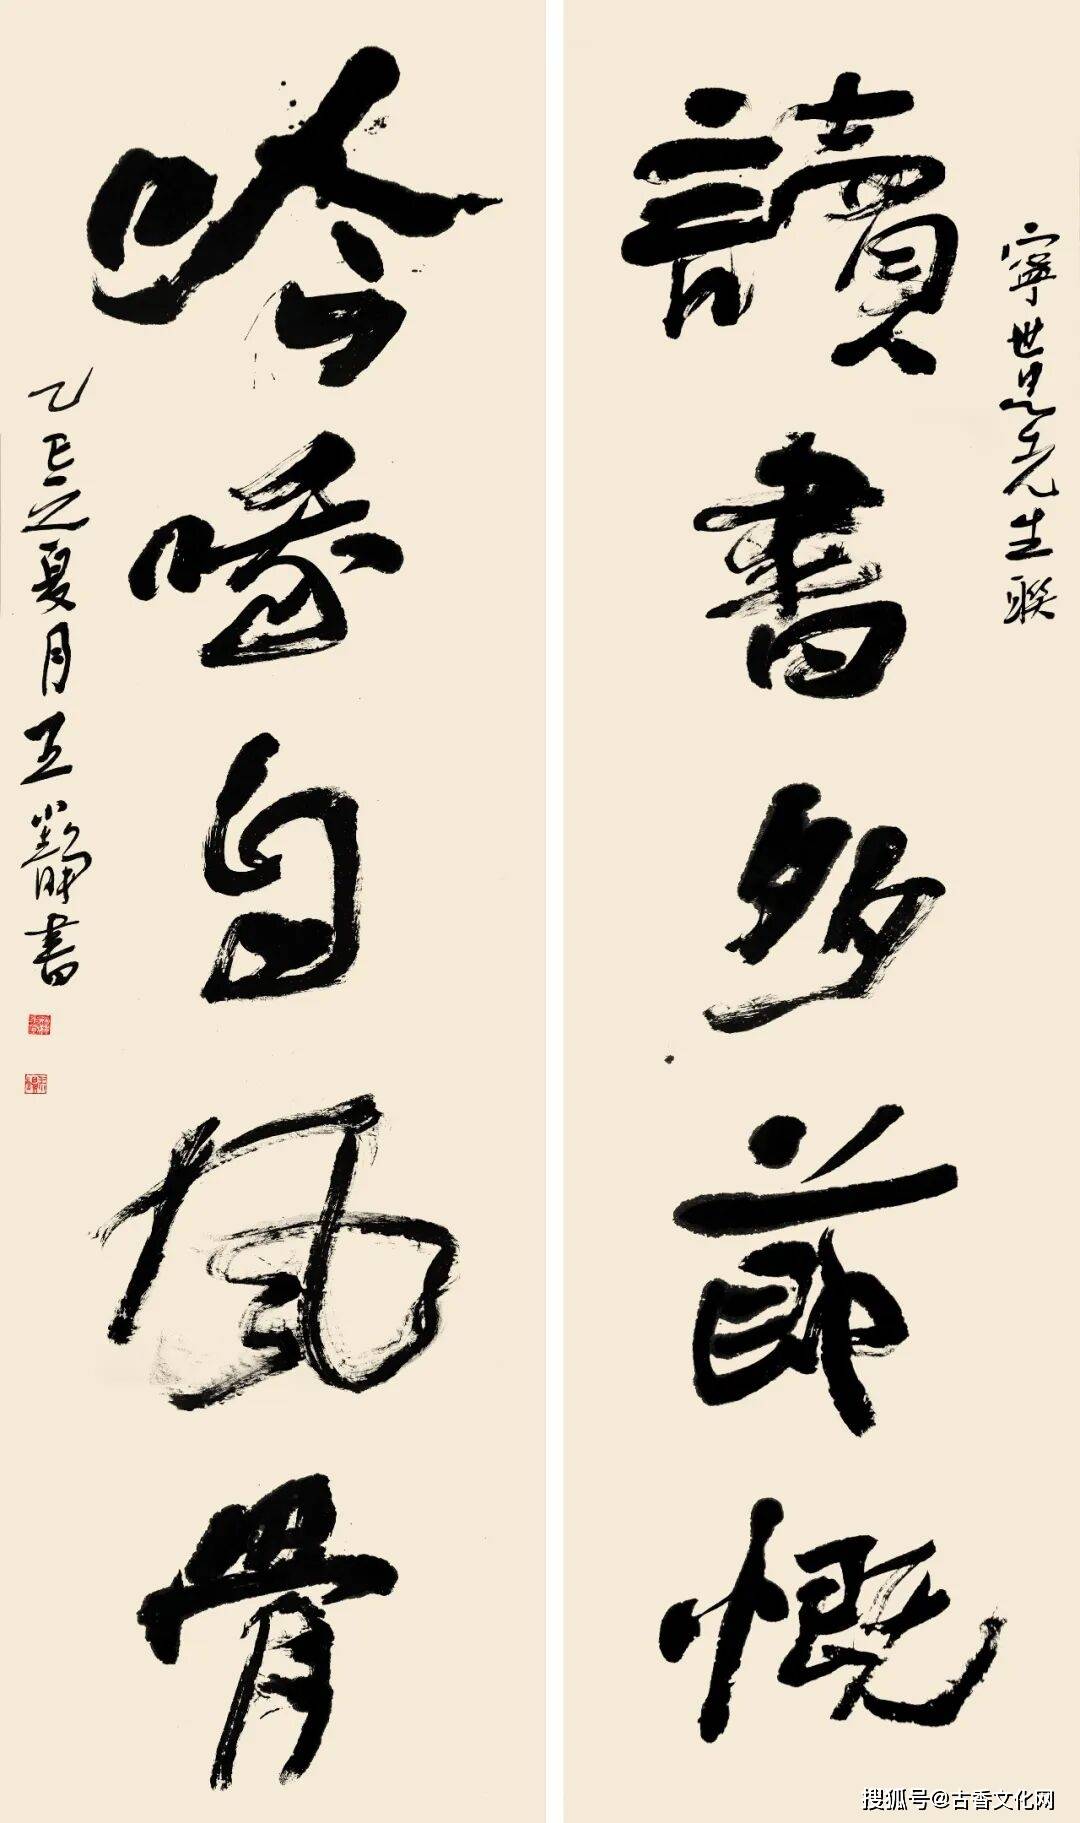 讀書多節慨
寧世先生聯
吟哦自風骨
乙巳之夏月王書
搜狐号@古香文化网